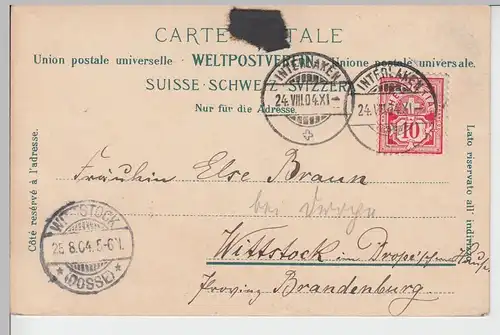 CARTE POSTALE
Union postale universelle · WELTPOSTVEREIN · Unione postale universale.
SUISSE · SCHWEIZ · SVIZZERA
Nur für die Adresse.
INTERLAKEN
24.VIII.04.XI
INTERLAKEN
24.VIII.04.XI
10
Côté réservé à l'adresse.
Lato riservato all' indirizzo.
Fräulein Else Braun
bei
Wittstock im Hause
Provinz Brandenburg
WITTSTOCK
25.8.04.5-6N.
*(DOSSE)*